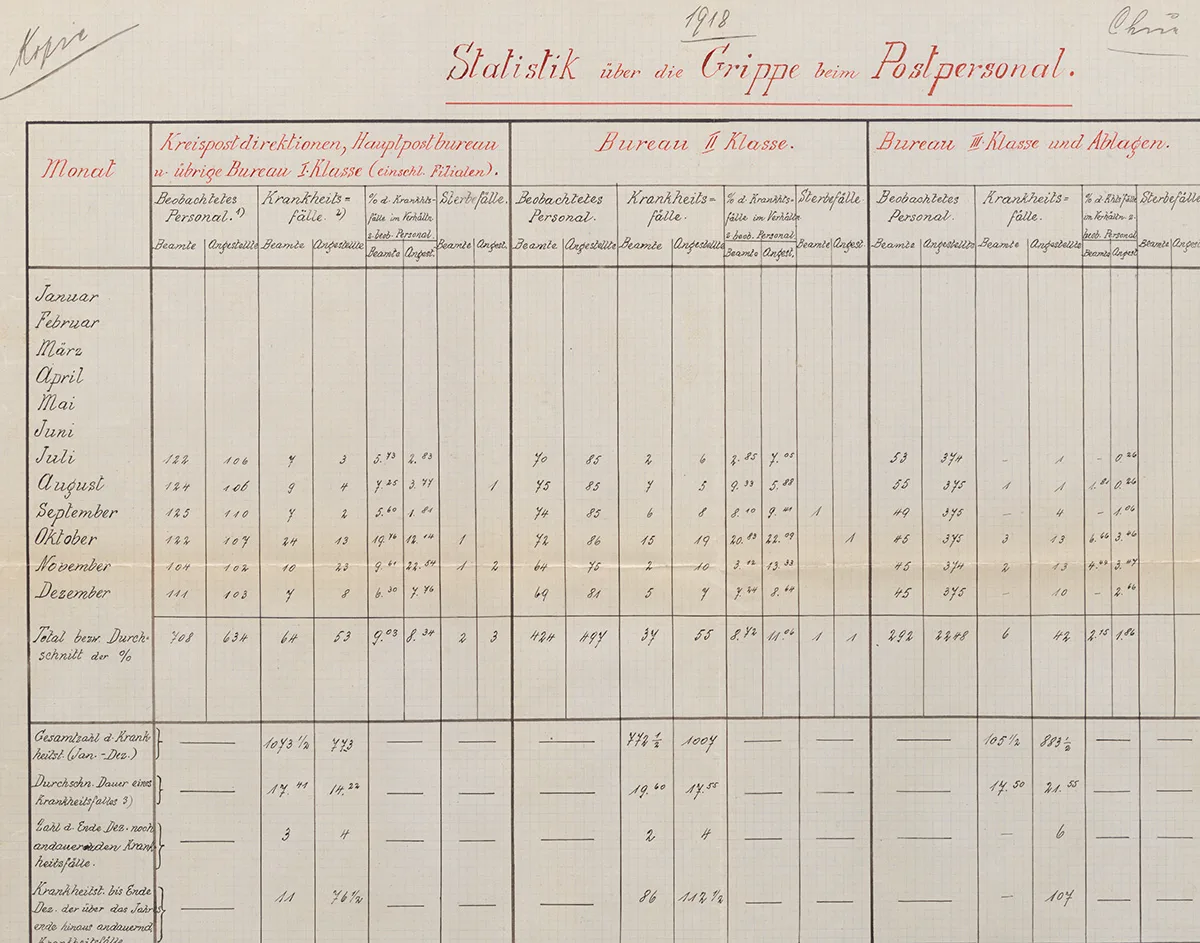 Kopie
1918
Statistik über die Grippe beim Postpersonal.
Monat
Kreispostdirektionen, Hauptpostbureau
u. übrige Bureau I. Klasse (einschl. Filialen).
Bureau II Klasse.
Bureau III. Klasse und Ablagen.
Beobachtetes Personal. 1) Krankheits= fälle. 2) % d. Krankhts- fälle im Verhältn. z. beob. Personal Sterbefälle. Beobachtetes Personal. Krankheits= fälle. % d. Krankhts- fälle im Verhältn. z. beob. Personal Sterbefälle Beobachtetes Personal. Krankheits= fälle. % d. Khtsfälle im Verhältn. z. beob. Personal Sterbefälle
Beamte Angestellte Beamte Angestellte Beamte Angest. Beamte Angest. Beamte Angestellte Beamte Angestellte Beamte Angest. Beamte Angest. Beamte Angestellte Beamte Angestellte Beamte Angest. Beamte Angest.
Januar
Februar
März
April
Mai
Juni
Juli 122 106 7 3 5.73 2.83 70 85 2 6 2.85 7.05 53 374 - 1 - 0.26
August 124 106 9 4 7.25 3.77 1 75 85 7 5 9.33 5.88 55 375 1 1 1.81 0.26
September 125 110 7 2 5.60 1.81 74 85 6 8 8.10 9.41 1 49 375 - 4 - 1.06
Oktober 122 107 24 13 19.76 12.14 1 72 86 15 19 20.83 22.09 1 45 375 3 13 6.66 3.46
November 104 102 10 23 9.61 22.54 1 2 64 75 2 10 3.12 13.33 45 374 2 13 4.44 3.47
Dezember 111 103 7 8 6.30 7.76 69 81 5 7 7.24 8.64 45 375 - 10 - 2.66
Total bezw. Durch-
schnitt der % 708 634 64 53 9.03 8.34 2 3 424 497 37 55 8.72 11.06 1 1 292 2248 6 42 2.15 1.86
Gesamtzahl d. Krank-
heitst. (Jan. - Dez.) — 1073 1/2 773 — — — — — 772 1/2 1007 — — — — — 105 1/2 883 1/2 — —
Durchschn. Dauer eines
Krankheitsfalles 3) — 17.41 14.22 — — — — — 19.60 17.55 — — — — — 17.50 21.55 — —
Zahl d. Ende Dez. noch
andauernden Krank-
heitsfälle. — 3 4 — — — — — 2 4 — — — — — - 6 — —
Krankheitst. bis Ende
Dez. der über das Jahres-
ende hinaus andauernd. — 11 76 1/2 — — — — — 86 112 1/2 — — — — — - 107 — —
Krankheitsfälle